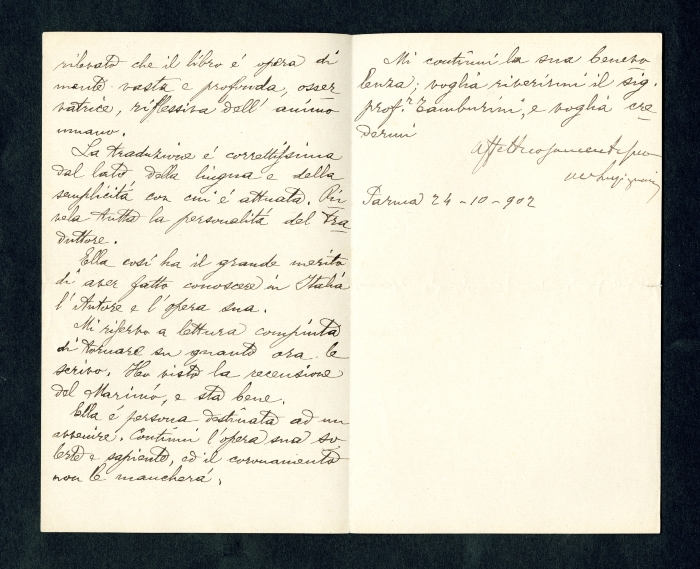 rilevato che il libro é opera di
mente vasta e profonda, osser
vatrice, riflessiva dell' animo
umano.
La traduzione é correttissima
dal lato della lingua e della
semplicitá con cui é attuata. Ri
vela tutta la personalitá del tra
duttore.
Ella cosí ha il grande merito
di aver fatto conoscere in Italia
l'Autore e l'opera sua.
Mi riservo a lettura compiuta
di tornare su quanto ora le
scrivo. Ho visto la recensione
del Marimó, e sta bene.
Ella é persona destinata ad un
avvenire. Continui l'opera sua so
lerte e sapiente, ed il coronamento
non le mancherá.
Mi continui la sua benevo
lenza; voglia riverirmi il sig.
prof.r Tamburini, e voglia cre
dermi
affettuosamente suo
Parma 24-10-902